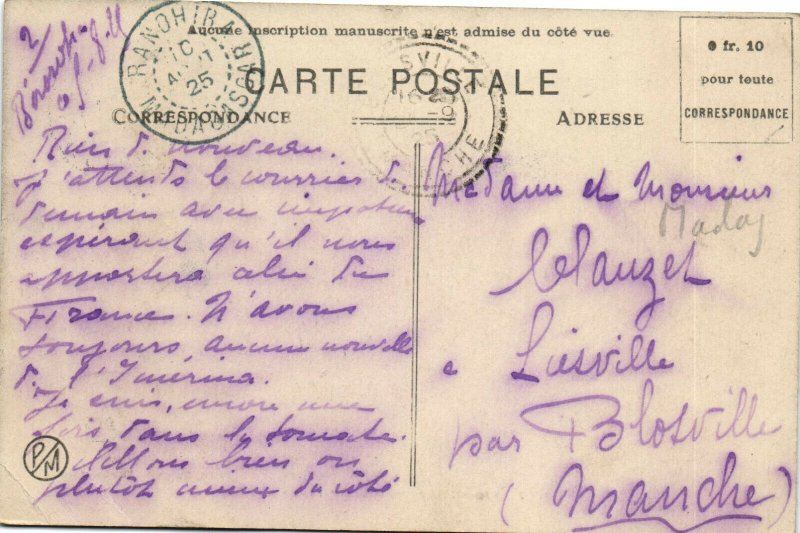 Aucune inscription manuscrite n'est admise du côté vue.
CARTE POSTALE
CORRESPONDANCE
ADRESSE
0 fr. 10
pour toute
CORRESPONDANCE
RANOHIRA
10
AOUT
25
MADAGASCAR
SVILLE
16
CHE
Rien de nouveau.
J'attends le courrier de
demain avec impatience
espérant qu'il nous
apportera celui de
France. N'avons
toujours, aucune nouvelle
de l'Imerina.
Je suis, encore une
fois dans la tomate.
Allons bien ou
plutôt comme du côté
Madame et Monsieur
Lelauzet
à Liesville
par Blosville
(Manche)
Madag
PM